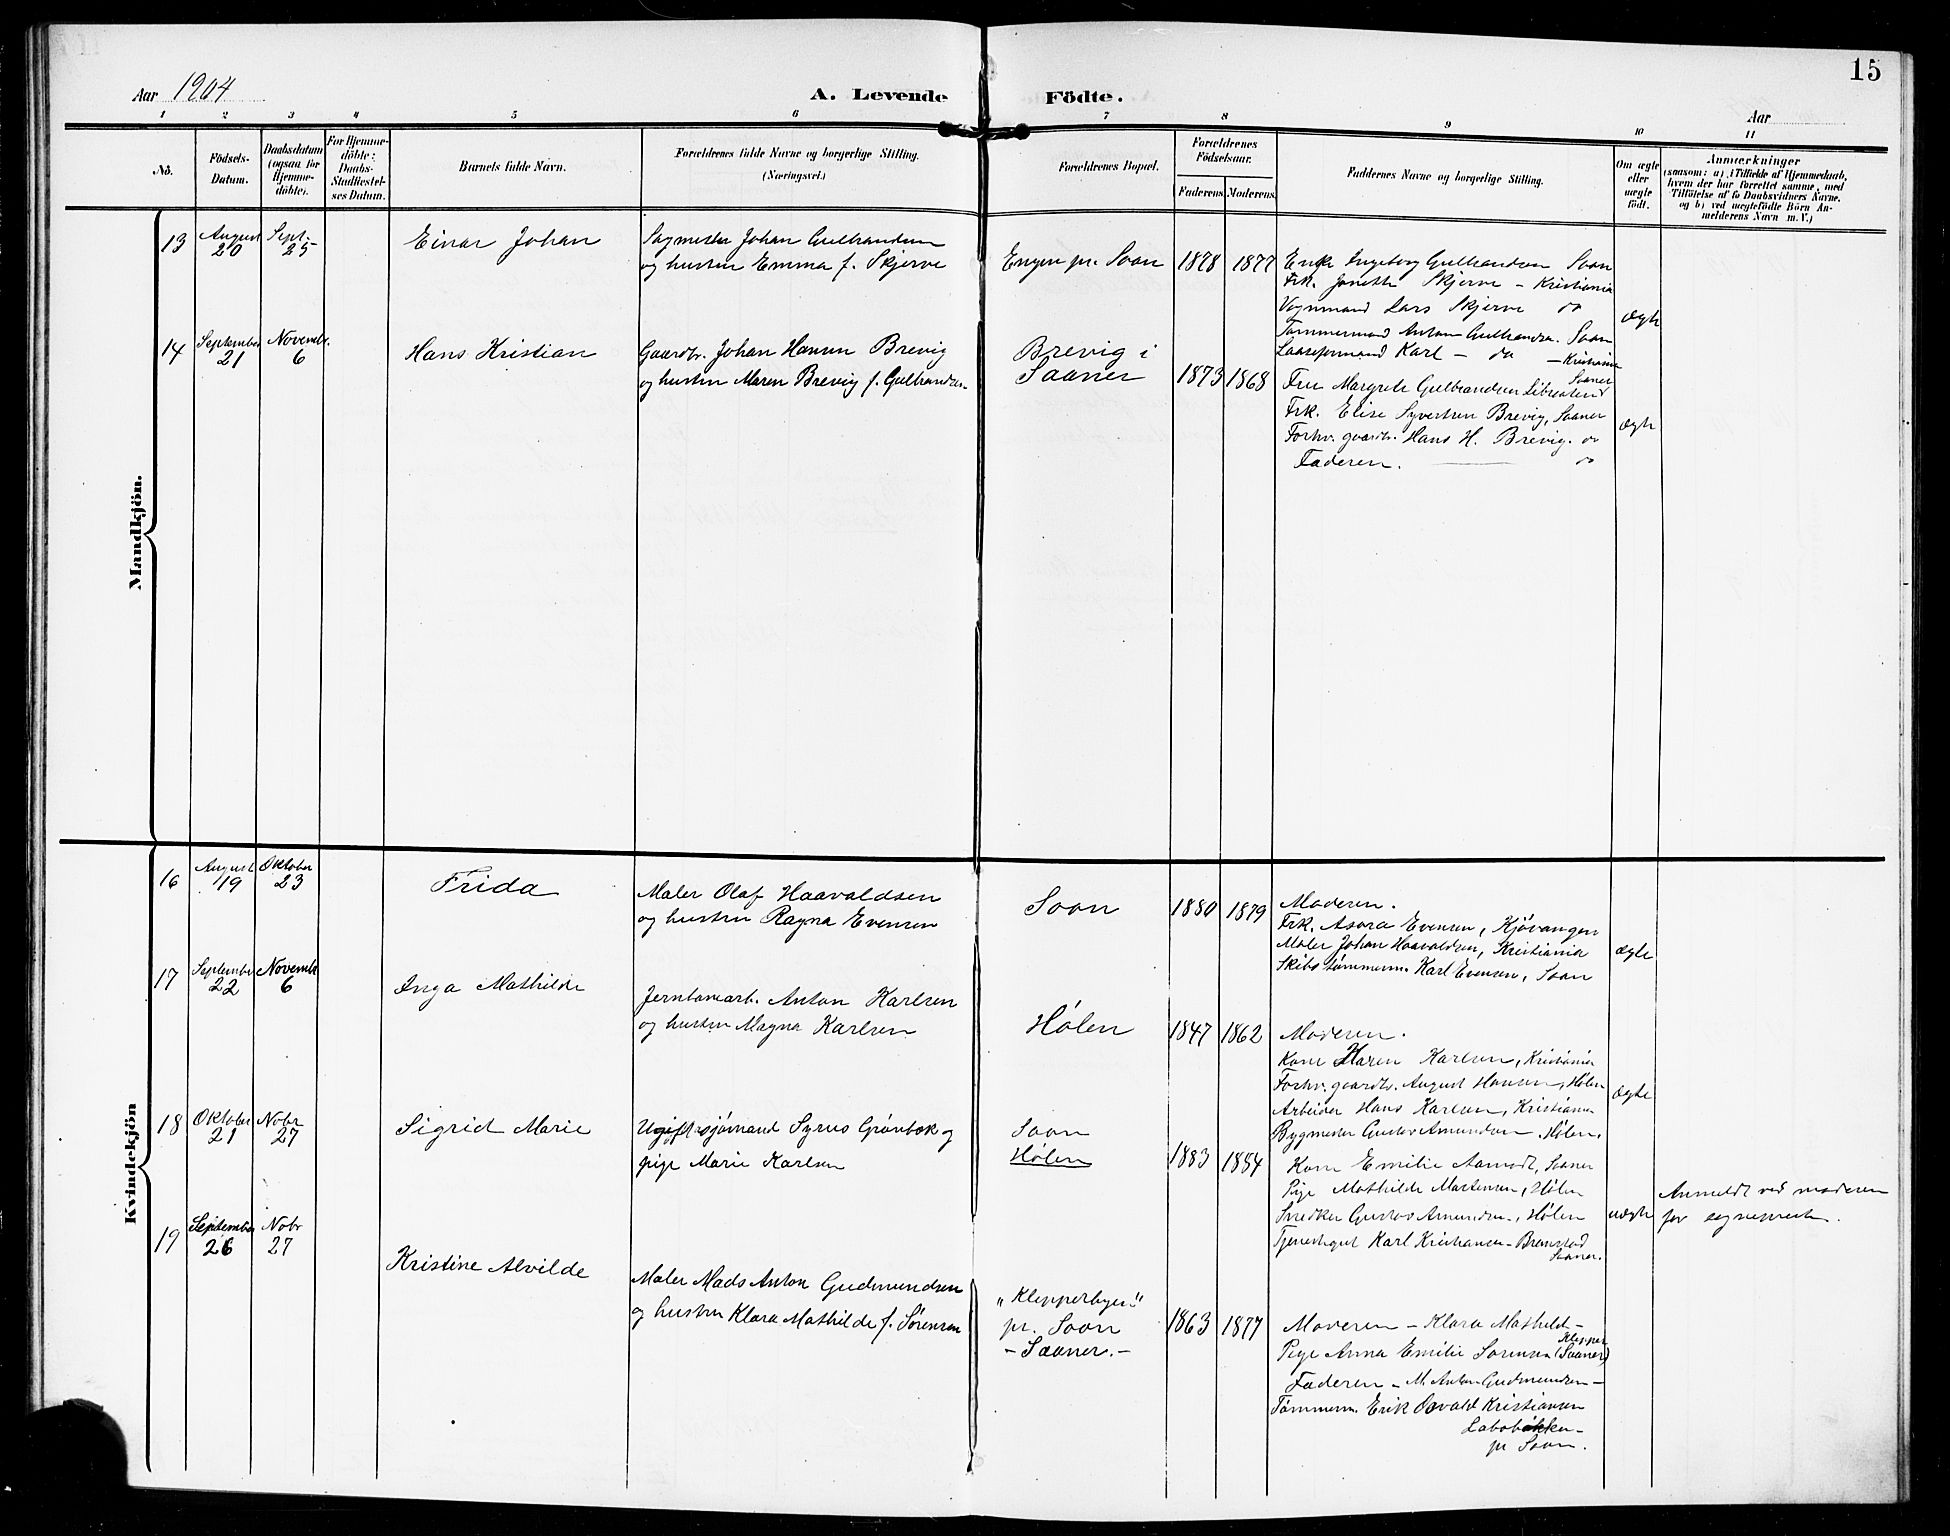 15
Aar 1904
A. Levende Födte.
Aar
1 2 3 4 5 6 7 8 9 10 11
No.
Födsels-
Datum.
Daabsdatum
(ogsaa for
Hjemme-
döbte).
For Hjemme-
döbte:
Daabs-
Stadfæstel-
ses Datum.
Barnets fulde Navn.
Forældrenes fulde Navne og borgerlige Stilling.
(Næringsvei.)
Forældrenes Bopæl.
Forældrenes
Födselsaar.
Faderens Moderens
Faddernes Navne og borgerlige Stilling.
Om ægte
eller
uægte
födt.
Anmærkninger
(saasom: a) i Tilfælde af Hjemmedaab,
hvem der har forrettet samme, med
Tilföielse af to Daabsvidners Navne,
og b) ved uægtefödte Börn An-
melderens Navn m. V.)
Mandkjön.
13
August
20
Sept.
25
Einar Johan
Sagmester Johan Gulbrandsen
og hustru Emma f. Skjerve
Engen pr. Soon
1878
1877
Enke Ingeborg Gulbrandsen Soon
Frk. Janette Skjerve - Kristiania
Vognmand Lars Skjerve do
Tømmermand Anton Gulbrandsn. Soon
Laaseformand Karl - do - Kristiania
ægte
14
September
21
Novembr.
6
Hans Kristian
Gaardbr. Johan Hansen Brevig
og hustru Maren Brevig f. Gulbrandsen
Brevig i
Saaner
1873
1868
Saaner
Fru Margrete Gulbrandsen
Frk. Elise Syvertsen Brevig, Saaner
Forhv. gaardbr. Hans H. Brevig. do
Faderen. do
ægte
Kvindekjön
16
August
19
Oktober
23
Frida
Maler Olaf Haavaldsen
og hustru Ragna Evensen
Soon
1880
1879
Moderen.
Frk. Asora Evensen, Kjøvangen
Maler Johan Haavaldsen, Kristiania
Skibstømmerm. Karl Evensen, Soon
ægte
17
September
22
Novembr
6
Inga Mathilde
Jernbanearb. Anton Karlsen
og hustru Magna Karlsen
Hølen
1847
1862
Moderen.
Kone Maren Karlsen, Kristiania
Forhv. gaardbr. August Hansen, Hølen
Arbeider Hans Karlsen, Kristiania
Bygmester Gustav Amundsen, Hølen.
ægte
18
Oktober
21
Nobr
27
Sigrid Marie
Ugift sjømand Syrus Grønbæk og
pige Marie Karlsen
Soon
Hølen
1883
1884
Kone Emilie Aamodt, Saaner
Pige Mathilde Martensen, Hølen
Snedker Gustav Amundsen, Hølen
Tjenestegut Karl Kristiansen - Brønstad
Saaner.
uægte
Anmeldt ved moderen
for sogneprest.
19
September
26
Nobr
27
Kristine Alvilde
Maler Mads Anton Gudmundsen
og hustru Klara Mathilde f. Sørensen
"Klepperbyen"
pr. Soon
- Saaner. -
1863
1877
Moderen - Klara Mathilde -
Pige Anna Emilie Sørensen (Klepper Saaner)
Faderen - M. Anton Gudmundsen -
Tømmerm. Erik Osvald Kristiansen
Labobakken -
pr Soon.